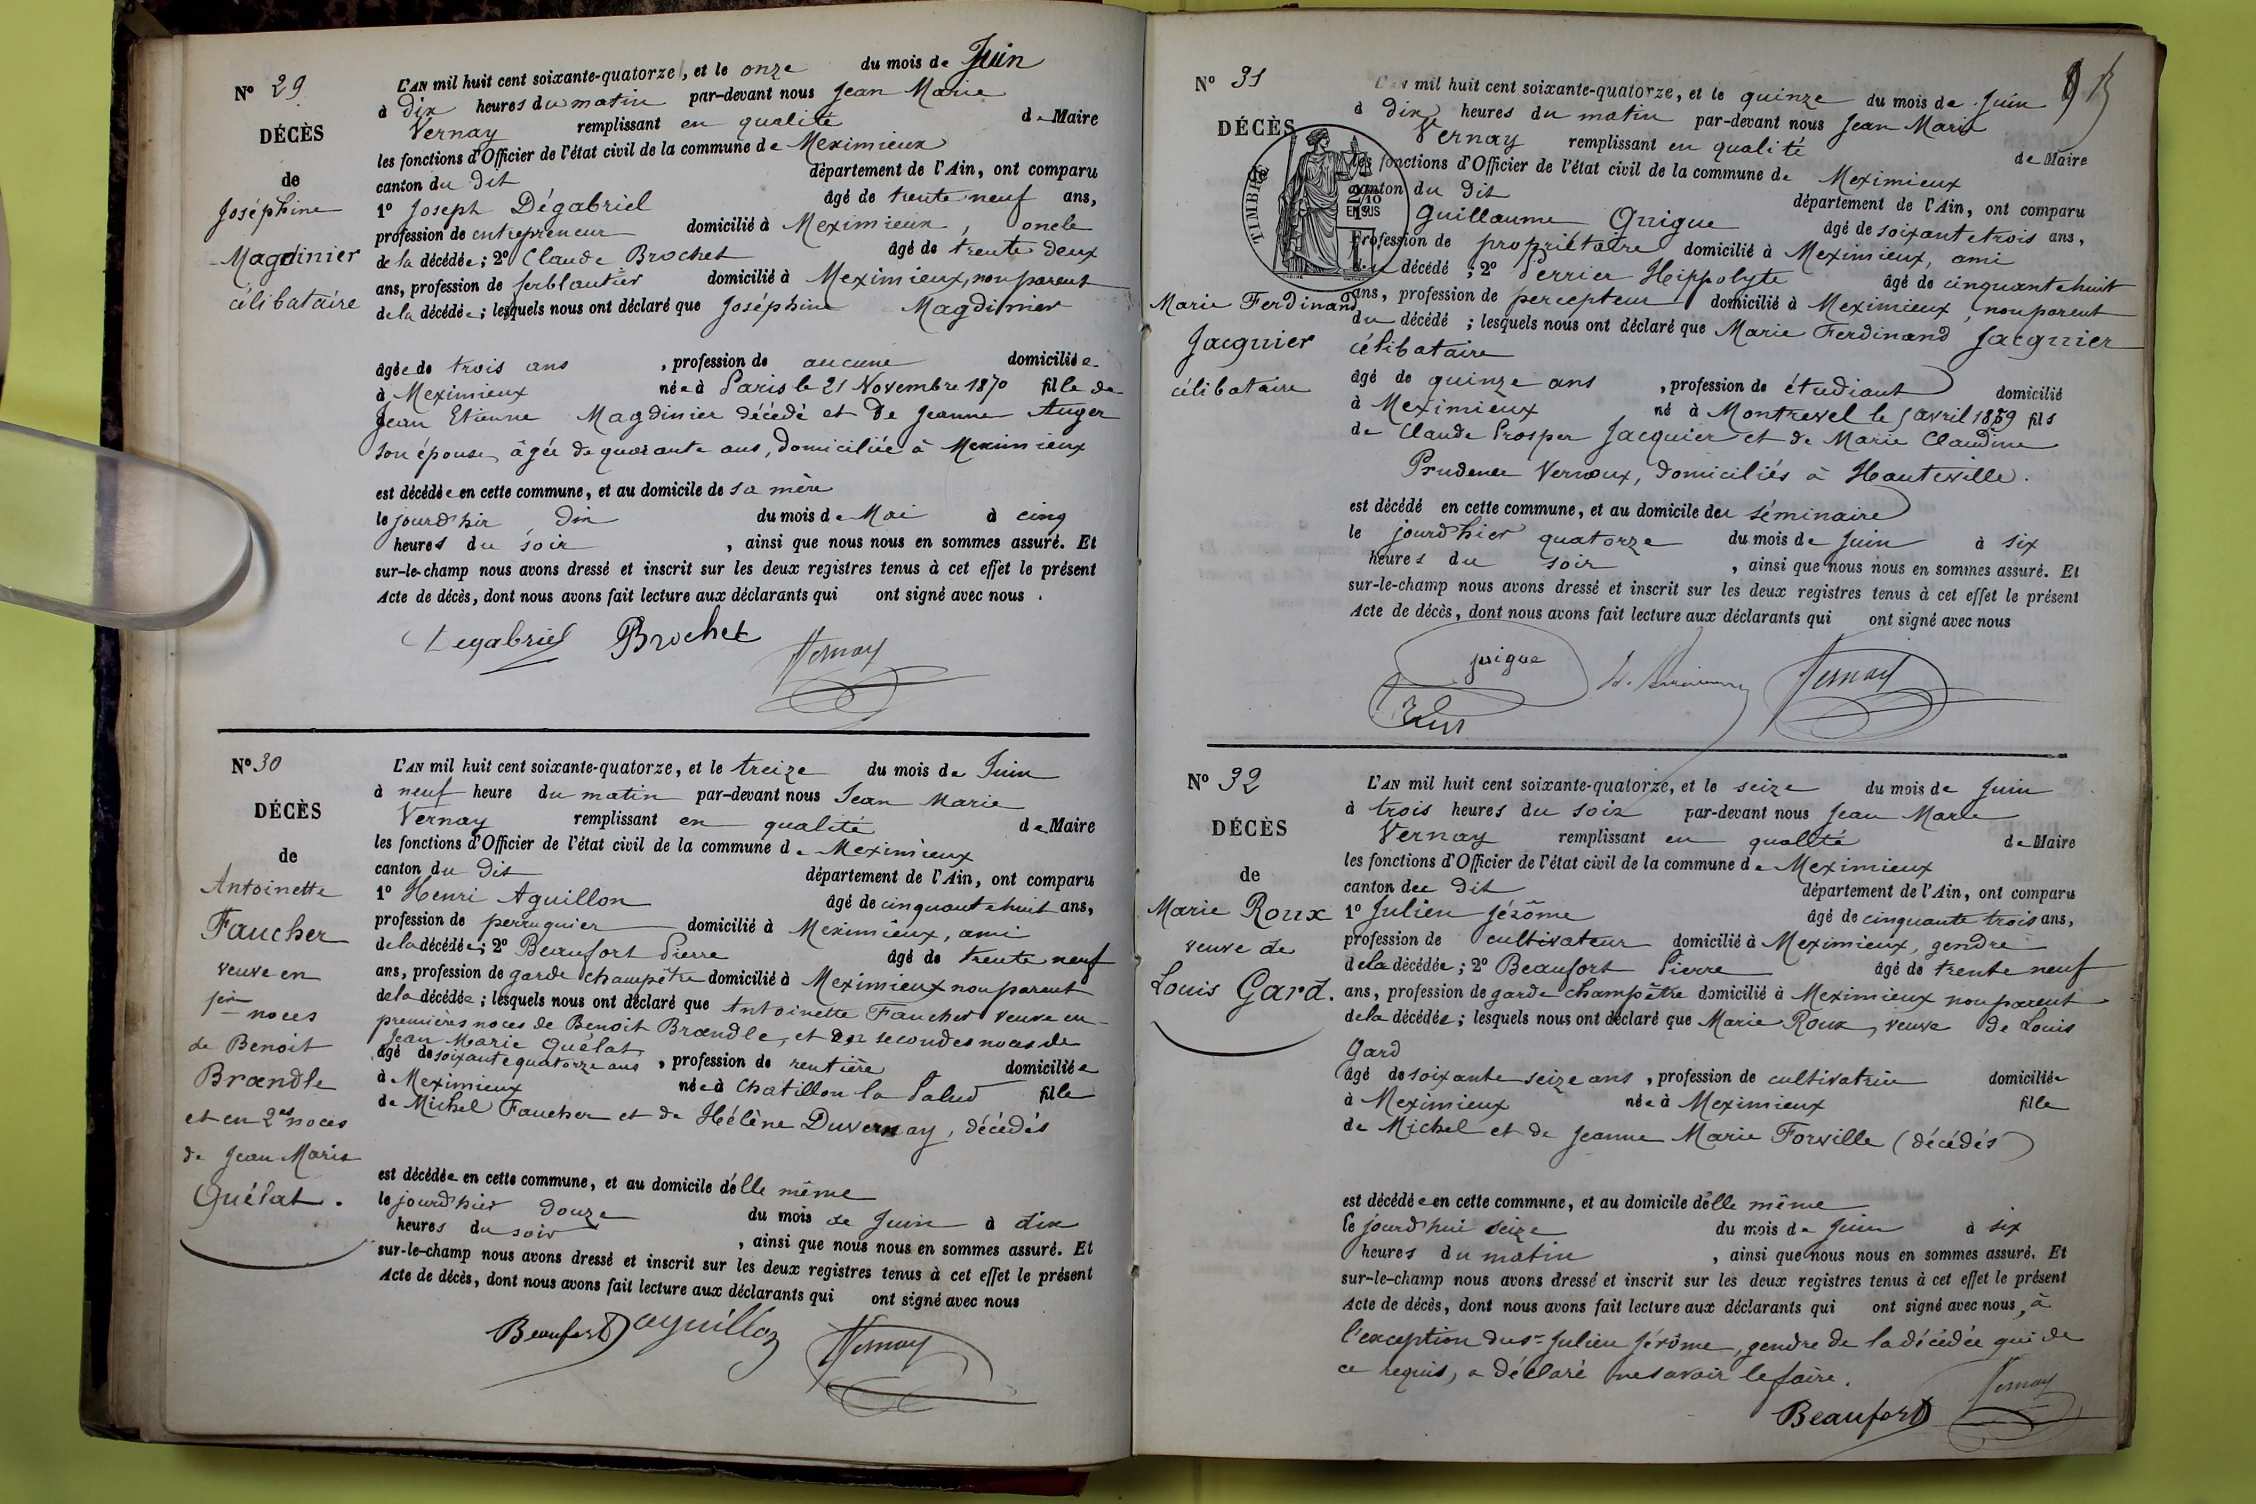 N° 29
DÉCÈS
de
Joséphine
Magdinier
célibataire
L'AN mil huit cent soixante-quatorze, et le onze du mois de Juin
à dix heures du matin par-devant nous Jean Marie
Vernay remplissant en qualité de Maire
les fonctions d'Officier de l'état civil de la commune de Meximieux
canton du dit département de l'Ain, ont comparu
1° Joseph Dégabriel âgé de trente neuf ans,
profession de entrepreneur domicilié à Meximieux, oncle
de la décédée; 2° Claude Brochet âgé de trente deux
ans, profession de ferblantier domicilié à Meximieux, non parent
de la décédée; lesquels nous ont déclaré que Joséphine Magdinier
âgée de trois ans, profession de aucune domiciliée
à Meximieux née à Paris le 21 Novembre 1870 fille de
Jean Etienne Magdinier décédé et de Jeanne Auger
son épouse, âgée de quarante ans, domiciliée à Meximieux
est décédée en cette commune, et au domicile de sa mère
le jourd'hir, dix du mois de Mai à cinq
heures du soir, ainsi que nous nous en sommes assuré. Et
sur-le-champ nous avons dressé et inscrit sur les deux registres tenus à cet effet le présent
Acte de décès, dont nous avons fait lecture aux déclarants qui ont signé avec nous.
Degabriel Brochet Vernay
N° 30
DÉCÈS
de
Antoinette
Faucher
veuve en
1ères noces
de Benoit
Brændle
et en 2es noces
de Jean Marie
Quélat.
L'AN mil huit cent soixante-quatorze, et le treize du mois de Juin
à neuf heure du matin par-devant nous Jean Marie
Vernay remplissant en qualité de Maire
les fonctions d'Officier de l'état civil de la commune de Meximieux
canton du dit département de l'Ain, ont comparu
1° Henri Aguillon âgé de cinquante huit ans,
profession de perruquier domicilié à Meximieux, ami
de la décédée; 2° Beaufort Pierre âgé de trente neuf
ans, profession de garde champêtre domicilié à Meximieux non parent
de la décédée; lesquels nous ont déclaré que Antoinette Faucher veuve en
premières noces de Benoit Brændle, et en secondes noces de
Jean Marie Quélat
âgé de soixante quatorze ans, profession de rentière domiciliée
à Meximieux née à Chatillon la Palud fille
de Michel Faucher et de Hélène Duvernay, décédés
est décédée en cette commune, et au domicile d'elle même
le jourd'hier douze du mois de Juin à dix
heures du soir, ainsi que nous nous en sommes assuré. Et
sur-le-champ nous avons dressé et inscrit sur les deux registres tenus à cet effet le présent
Acte de décès, dont nous avons fait lecture aux déclarants qui ont signé avec nous
Beaufort aguillon Vernay
N° 31
DÉCÈS
de
Marie Ferdinand
Jacquier
célibataire
TIMBRE
2/10
EN SUS
L'AN mil huit cent soixante-quatorze, et le quinze du mois de Juin
à dix heures du matin par-devant nous Jean Marie
Vernay remplissant en qualité de Maire
les fonctions d'Officier de l'état civil de la commune de Meximieux
canton du dit département de l'Ain, ont comparu
1° Guillaume Guigue âgé de soixante trois ans,
profession de propriétaire domicilié à Meximieux, ami
du décédé; 2° Perrier Hippolyte âgé de cinquante huit
ans, profession de percepteur domicilié à Meximieux, non parent
du décédé; lesquels nous ont déclaré que Marie Ferdinand Jacquier
célibataire
âgé de quinze ans, profession de étudiant domicilié
à Meximieux né à Montrevel le 5 avril 1859 fils
de Claude Prosper Jacquier et de Marie Claudine
Prudence Vernoux, domiciliés à Hauteville.
est décédé en cette commune, et au domicile du séminaire
le jourd'hier quatorze du mois de Juin à six
heures du soir, ainsi que nous nous en sommes assuré. Et
sur-le-champ nous avons dressé et inscrit sur les deux registres tenus à cet effet le présent
Acte de décès, dont nous avons fait lecture aux déclarants qui ont signé avec nous
guigue Vernay
N° 32
DÉCÈS
de
Marie Roux
veuve de
Louis Gard.
L'AN mil huit cent soixante-quatorze, et le seize du mois de Juin
à trois heures du soir par-devant nous Jean Marie
Vernay remplissant en qualité de Maire
les fonctions d'Officier de l'état civil de la commune de Meximieux
canton du dit département de l'Ain, ont comparu
1° Julien Jérôme âgé de cinquante trois ans,
profession de cultivateur domicilié à Meximieux, gendre
de la décédée; 2° Beaufort Pierre âgé de trente neuf
ans, profession de garde champêtre domicilié à Meximieux non parent
de la décédée; lesquels nous ont déclaré que Marie Roux, veuve de Louis
Gard
âgé de soixante seize ans, profession de cultivatrice domiciliée
à Meximieux née à Meximieux fille
de Michel et de Jeanne Marie Forville (décédés)
est décédée en cette commune, et au domicile d'elle même
le jourd'hui seize du mois de Juin à six
heures du matin, ainsi que nous nous en sommes assuré. Et
sur-le-champ nous avons dressé et inscrit sur les deux registres tenus à cet effet le présent
Acte de décès, dont nous avons fait lecture aux déclarants qui ont signé avec nous, à
l'exception du sr Julien Jérôme, gendre de la décédée qui de
ce requis, a déclaré ne savoir le faire.
Beaufort Vernay